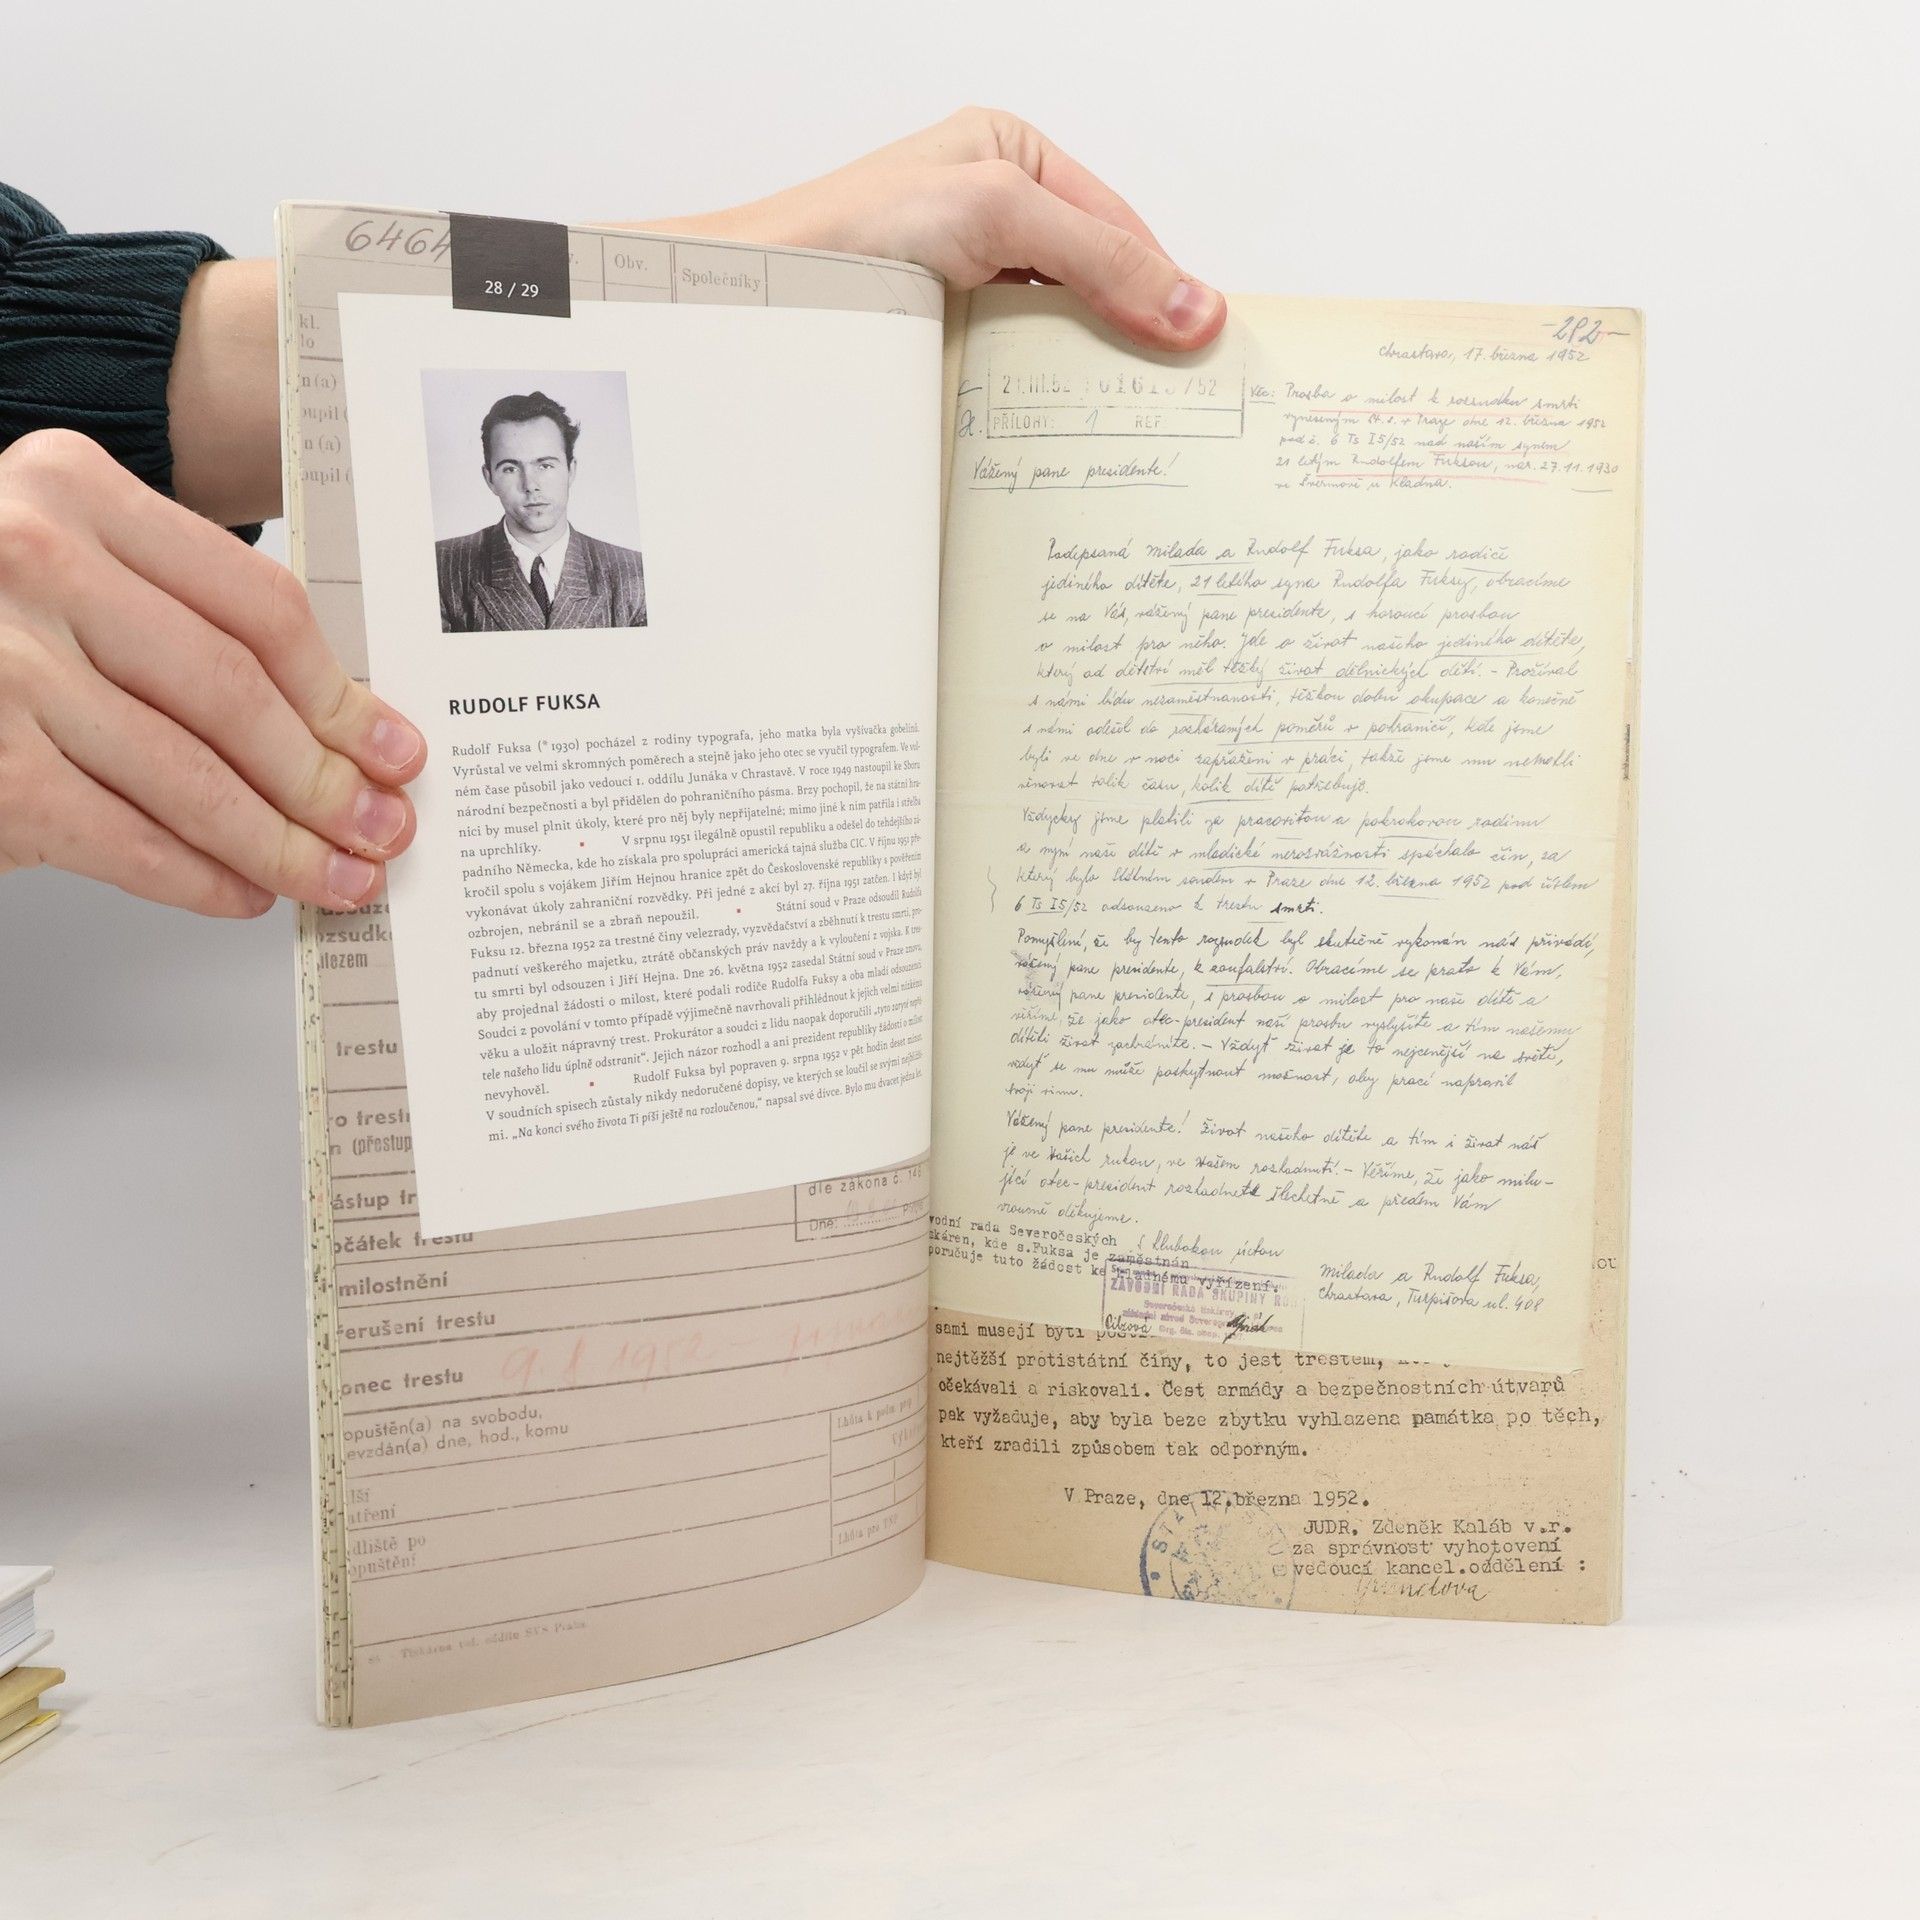 6464
Obv.
Společníky
28 / 29
RUDOLF FUKSA
Rudolf Fuksa (*1930) pocházel z rodiny typografa, jeho matka byla vyšívačka gobelínů.
Vyrůstal ve velmi skromných poměrech a stejně jako jeho otec se vyučil typografem. Ve vol-
ném čase působil jako vedoucí 1. oddílu Junáka v Chrastavě. V roce 1949 nastoupil ke Sboru
národní bezpečnosti a byl přidělen do pohraničního pásma. Brzy pochopil, že na státní hra-
nici by musel plnit úkoly, které pro něj byly nepřijatelné; mimo jiné k nim patřila i střelba
na uprchlíky. V srpnu 1951 ilegálně opustil republiku a odešel do tehdejšího zá-
padního Německa, kde ho získala pro spolupráci americká tajná služba CIC. V říjnu 1951 pře-
kročil spolu s vojákem Jiřím Hejnou hranice zpět do Československé republiky s pověřením
vykonávat úkoly zahraniční rozvědky. Při jedné z akcí byl 27. října 1951 zatčen. I když byl
ozbrojen, nebránil se a zbraň nepoužil. Státní soud v Praze odsoudil Rudolfa
Fuksu 12. března 1952 za trestné činy velezrady, vyzvědačství a zběhnutí k trestu smrti, pro-
padnutí veškerého majetku, ztrátě občanských práv navždy a k vyloučení z vojska. K tres-
tu smrti byl odsouzen i Jiří Hejna. Dne 26. května 1952 zasedal Státní soud v Praze znovu,
aby projednal žádosti o milost, které podali rodiče Rudolfa Fuksy a oba mladí odsouzení.
Soudci z povolání v tomto případě výjimečně navrhovali přihlédnout k jejich velmi nízkému
věku a uložit nápravný trest. Prokurátor a soudci z lidu naopak doporučili „tyto zaryté nepřá-
tele našeho lidu úplně odstranit“. Jejich názor rozhodl a ani prezident republiky žádosti o milost
nevyhověl. Rudolf Fuksa byl popraven 9. srpna 1952 v pět hodin deset minut.
V soudních spisech zůstaly nikdy nedoručené dopisy, ve kterých se loučil se svými nejbližší-
mi. „Na konci svého života Ti píši ještě na rozloučenou,“ napsal své dívce. Bylo mu dvacet jedna let.
trestu
očátek trestu
milostnění
řerušení trestu
onec trestu 9. 8. 1952
opuštěn(a) na svobodu,
evzdán(a) dne, hod., komu
dliště po
opuštění
dle zákona č.
Dne:
-282-
Chrastava, 17. března 1952
21.III.52 /52
PŘÍLOHY: 1 REF:
Věc: Prosba o milost k rozsudku smrti
vyneseným St. s. v Praze dne 12. března 1952
pod č. 6 Ts I 5/52 nad naším synem
21 letým Rudolfem Fuksou, nar. 27.11.1930
ve Švermově u Kladna.
Vážený pane presidente!
Podepsaná Milada a Rudolf Fuksa, jako rodiče
jediného dítěte, 21 letého syna Rudolfa Fuksy, obracíme
se na Vás, vážený pane presidente, s horoucí prosbou
o milost pro něho. Jde o život našeho jediného dítěte,
který od dětství měl těžký život dělnických dětí. - Prožíval
s námi bídu nezaměstnanosti, těžkou dobu okupace a konečně
s námi odešel do rozháraných poměrů v pohraničí, kde jsme
byli ve dne v noci zapřaženi v práci, takže jsme mu nemohli
věnovat tolik času, kolik dítě potřebuje.
Vždycky jsme platili za pracovitou a pokrokovou rodinu
a nyní naše dítě v mladické nerozvážnosti spáchalo čin, za
který bylo Státním soudem v Praze dne 12. března 1952 pod číslem
6 Ts I5/52 odsouzeno k trestu smrti.
Pomyšlení, že by tento rozsudek byl skutečně vykonán nás přivádí,
vážený pane presidente, k zoufalství. Obracíme se proto k Vám,
vážený pane presidente, s prosbou o milost pro naše dítě a
věříme, že jako otec-president naši prosbu vyslyšíte a tím našemu
dítěti život zachráníte. - Vždyť život je to nejcennější na světě,
vždyť se mu může poskytnout možnost, aby prací napravil
svoji vinu.
Vážený pane presidente! Život našeho dítěte a tím i život náš
je ve Vašich rukou, ve Vašem rozhodnutí. - Věříme, že jako milu-
jící otec-president rozhodnete šlechetně a předem Vám
vroucně děkujeme.
S hlubokou úctou
vodní rada Severočeských
skáren, kde s.Fuksa je zaměstnán
poručuje tuto žádost ke kladnému vyřízení.
Milada a Rudolf Fuksa,
Chrastava, Turpišova ul. 408
ZÁVODNÍ RADA SKUPINY
sami musejí býti
nejtěžší protistátní činy, to jest trestem,
očekávali a riskovali. Čest armády a bezpečnostních útvarů
pak vyžaduje, aby byla beze zbytku vyhlazena památka po těch,
kteří zradili způsobem tak odporným.
V Praze, dne 12.března 1952.
JUDR. Zdeněk Kaláb v.r.
za správnost vyhotovení
vedoucí kancel.oddělení :